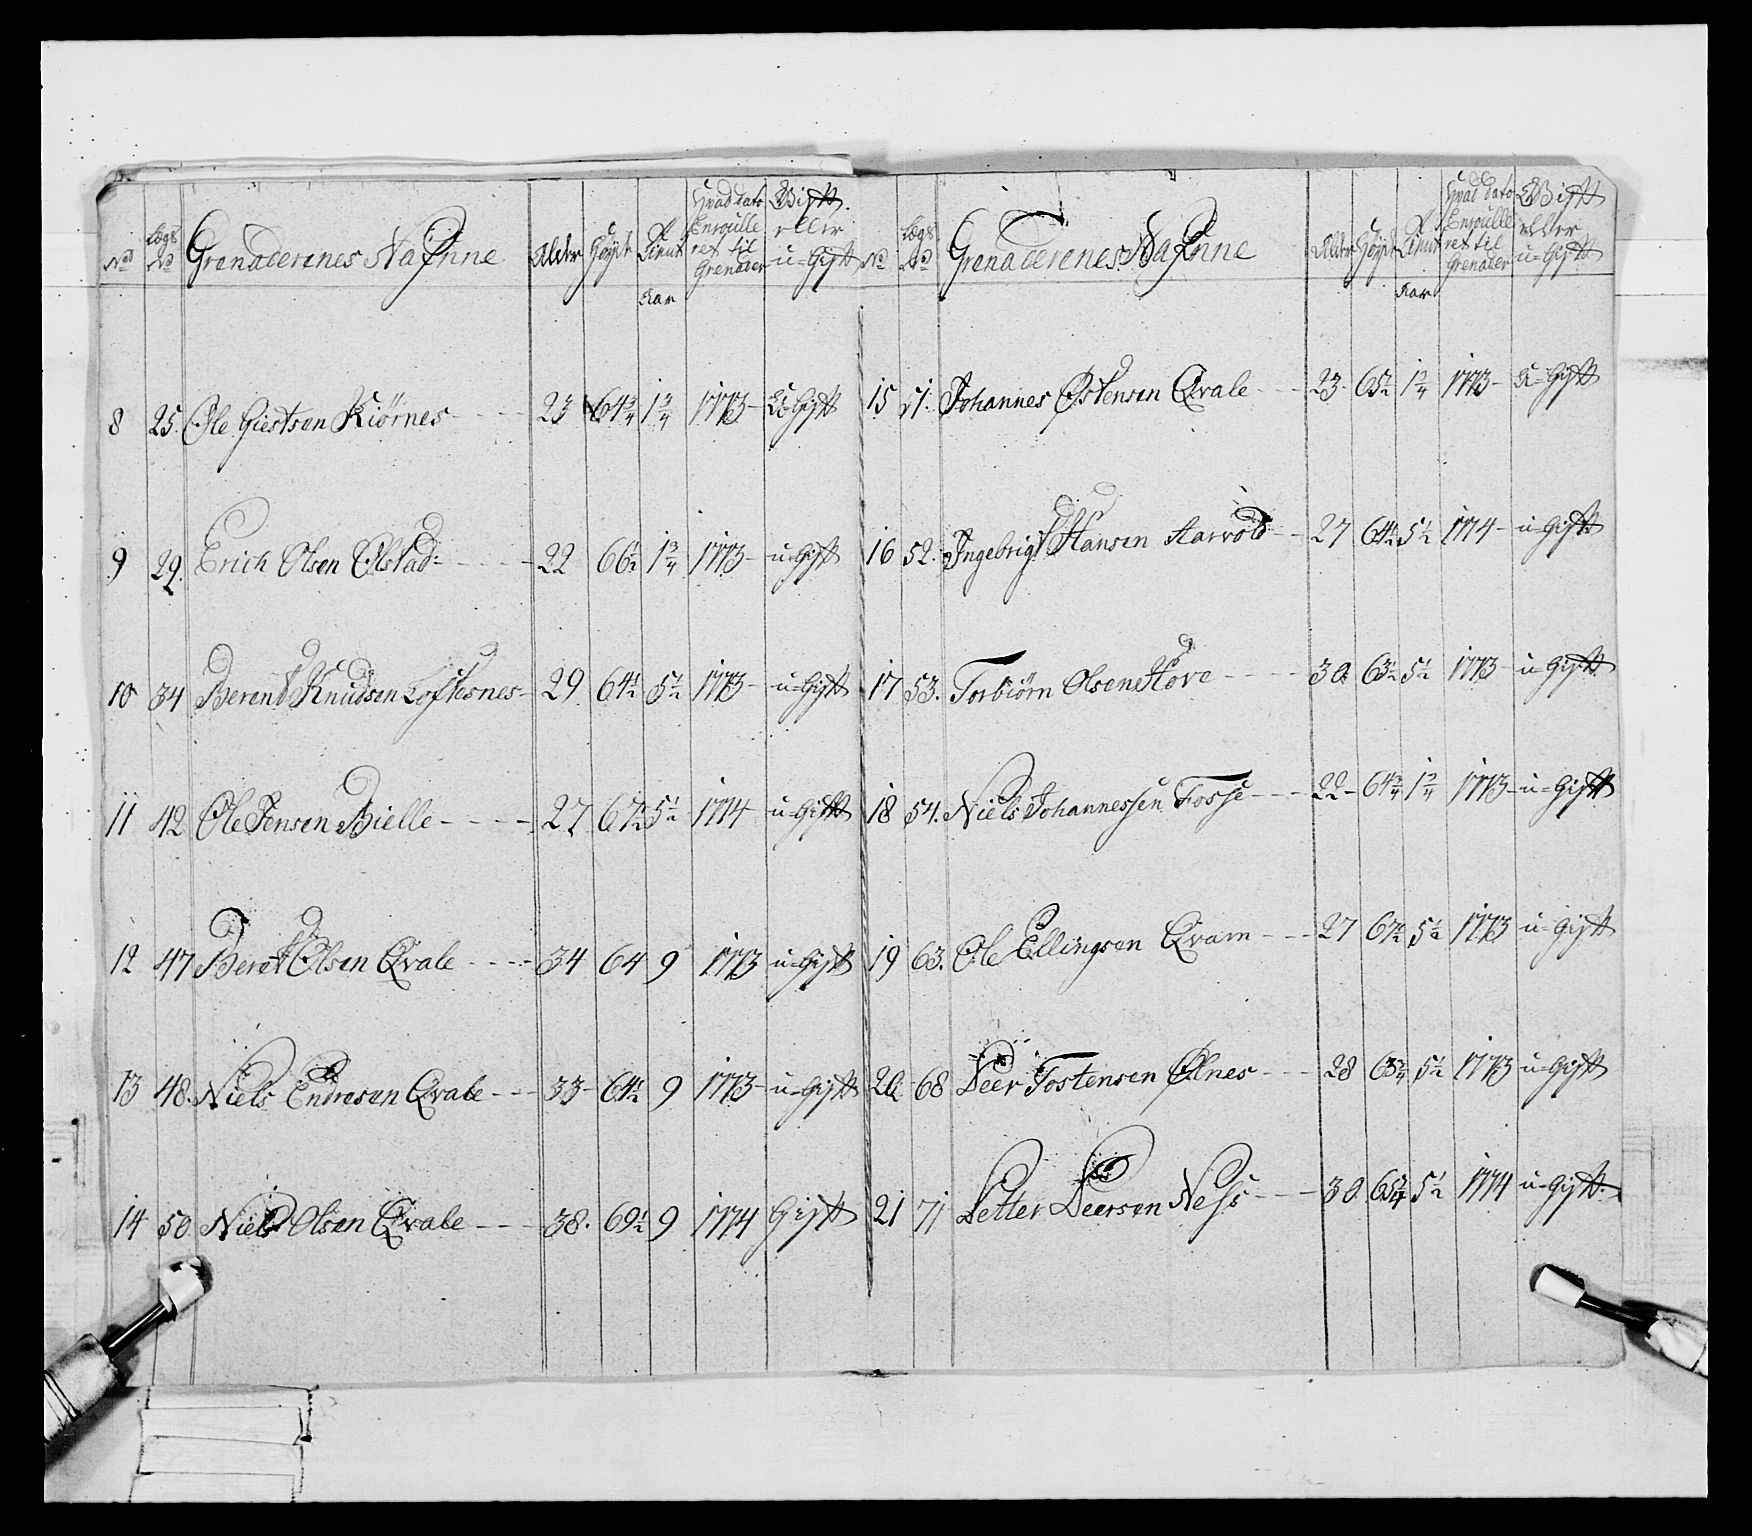 No Lægs No Grenaderenes Nafne Alder Høyde Tient Aar Hvad dato Enroulleret til Grenader Gift eller u-Gift
8 25. Ole Giestsen Kiørnes 23 64¾ 1¾ 1773 U-Gift
9 29. Erich Olsen Ølstad 22 66½ 1¾ 1773 u-Gift
10 34 Berent Knudsen Loftesnes 29 64½ 5½ 1773 u-Gift
11 42 Ole Jensen Bielle 27 67½ 5½ 1774 u-Gift
12 47 Beret Olsen Qvale 34 64 9 1773 u-Gift
13 48. Niels Endresen Qvale 33 64½ 9 1773 u-Gift
14 50 Niels Olsen Qvale 38. 69½ 9 1774 Gift
No Lægs No Grenaderenes Nafne Alder Høyde Tient Aar Hvad dato Enroulleret til Grenader Gift eller u-Gift
15 51. Johannes Østensen Qvale 23 65½ 1¾ 1773 u-Gift
16 52. Ingebrigt Hansen Aarvold 27 64½ 5½ 1774 u-Gift
17 53. Torbiørn Olsen Hove 30 63½ 5½ 1773 u-Gift
18 54. Niels Johannessen Fosse 22 64¾ 1¾ 1773 u-Gift
19 63. Ole Ellingsen Qvam 27 67¼ 5½ 1773 u-Gift
20 68 Peer Tostensen Ølnes 28 63¾ 5½ 1773 u-Gift
21 71 Petter Peersen Ness 30 65¾ 5½ 1774 u-Gift